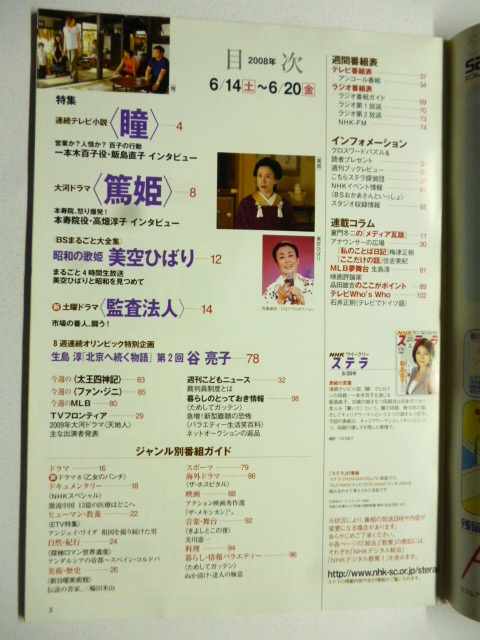 目 2008年 次
6/14(土)〜6/20(金)
特集
連続テレビ小説〈瞳〉—4
営業か？人情か？ 百子の行動
一本木百子役・飯島直子 インタビュー
大河ドラマ〈篤姫〉—8
本寿院、怒り爆発！
本寿院役・高畑淳子 インタビュー
〈BSまるごと大全集〉
昭和の歌姫 美空ひばり—12
まるごと4時間生放送
美空ひばりと昭和を見つめて
新 土曜ドラマ〈監査法人〉—14
市場の番人、闘う！
8週連続オリンピック特別企画
生島 淳「北京へ続く物語」第2回 谷 亮子 78
今週の〈太王四神記〉—83
今週の〈ファン・ジニ〉—85
今週のMLB—80
TVフロンティア—29
2009年大河ドラマ〈天地人〉
主な出演者発表
週刊こどもニュース—32
裁判員制度とは
暮らしのとっておき情報—98
〈ためしてガッテン〉
急増！新型難聴の恐怖
〈バラエティー生活笑百科〉
ネットオークションの返品
ジャンル別番組ガイド
ドラマ—16
新 ドラマ8〈乙女のパンチ〉
ドキュメンタリー—18
〈NHKスペシャル〉
激流中国 13億の医療はどこへ
ヒューマン・教養—22
〈ETV特集〉
アンジェイ・ワイダ 祖国を撮り続けた男
自然・紀行—24
〈探検ロマン世界遺産〉
アンダルシアの帝都〜スペイン・コルドバ
美術・歴史—26
〈新日曜美術館〉
伝説の書家、三輪田米山
スポーツ—79
海外ドラマ—86
〈ザ・ホスピタル〉
映画—88
アクション映画秀作選
「ザ・メキシカン」
音楽・舞台—92
〈きよしとこの夜〉
美川憲一
料理—94
暮らし・情報バラエティー—96
〈ためしてガッテン〉
ぬか漬け・達人の極意
3
(篤姫)
美空ひばり
週間番組表
テレビ番組表—37
アンコール番組—34
ラジオ番組表
ラジオ番組ガイド—69
ラジオ第1放送—70
ラジオ第2放送—73
NHK-FM—74
インフォメーション
クロスワードパズル&
読者プレゼント
週刊ブックレビュー
こちらステラ探偵団
NHKイベント情報
〈BSおかあさんといっしょ〉
スタジオ収録情報
連載コラム
童門冬二の「メディア瓦版」—11
アナウンサーの広場—30
「私のことば日記」梅津正樹
「ここだけの話」住吉美紀
MLB夢舞台 生島淳—81
映画評論家
品田雄吉のここがポイント—89
テレビWho's Who—102
石井正則〈テレビでドイツ語〉
NHK ウイークリー
ステラ
6/20号
表紙の言葉
「ステラ」の意味
※状況により、番組の放送日時や内容が
変更になる場合があります。
あらかじめご了承ください。
http://www.nhk-sc.or.jp/stera/